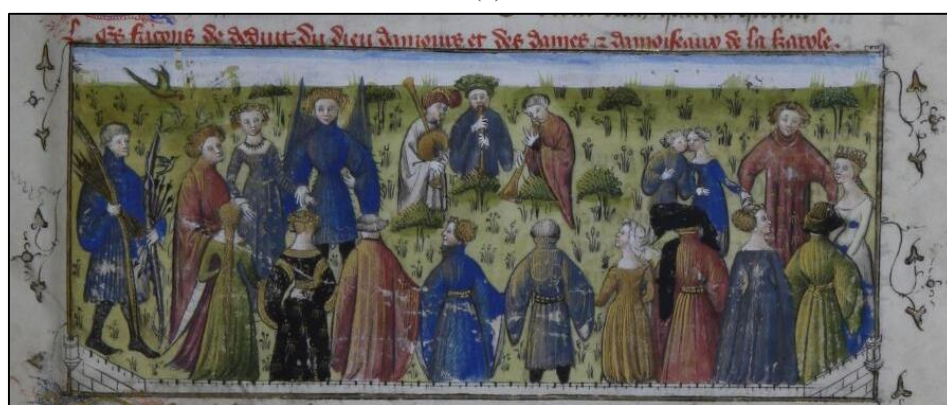 Les facons de deduit du dieu damours et des dames ⁊ damoiseaux de la karole.